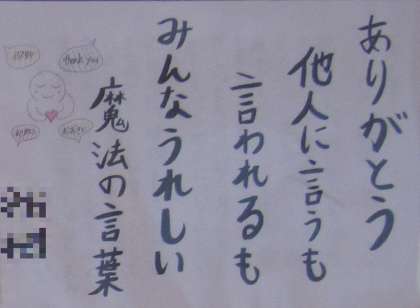 ありがとう
他人に言うも
言われるも
みんなうれしい
魔法の言葉
thank you